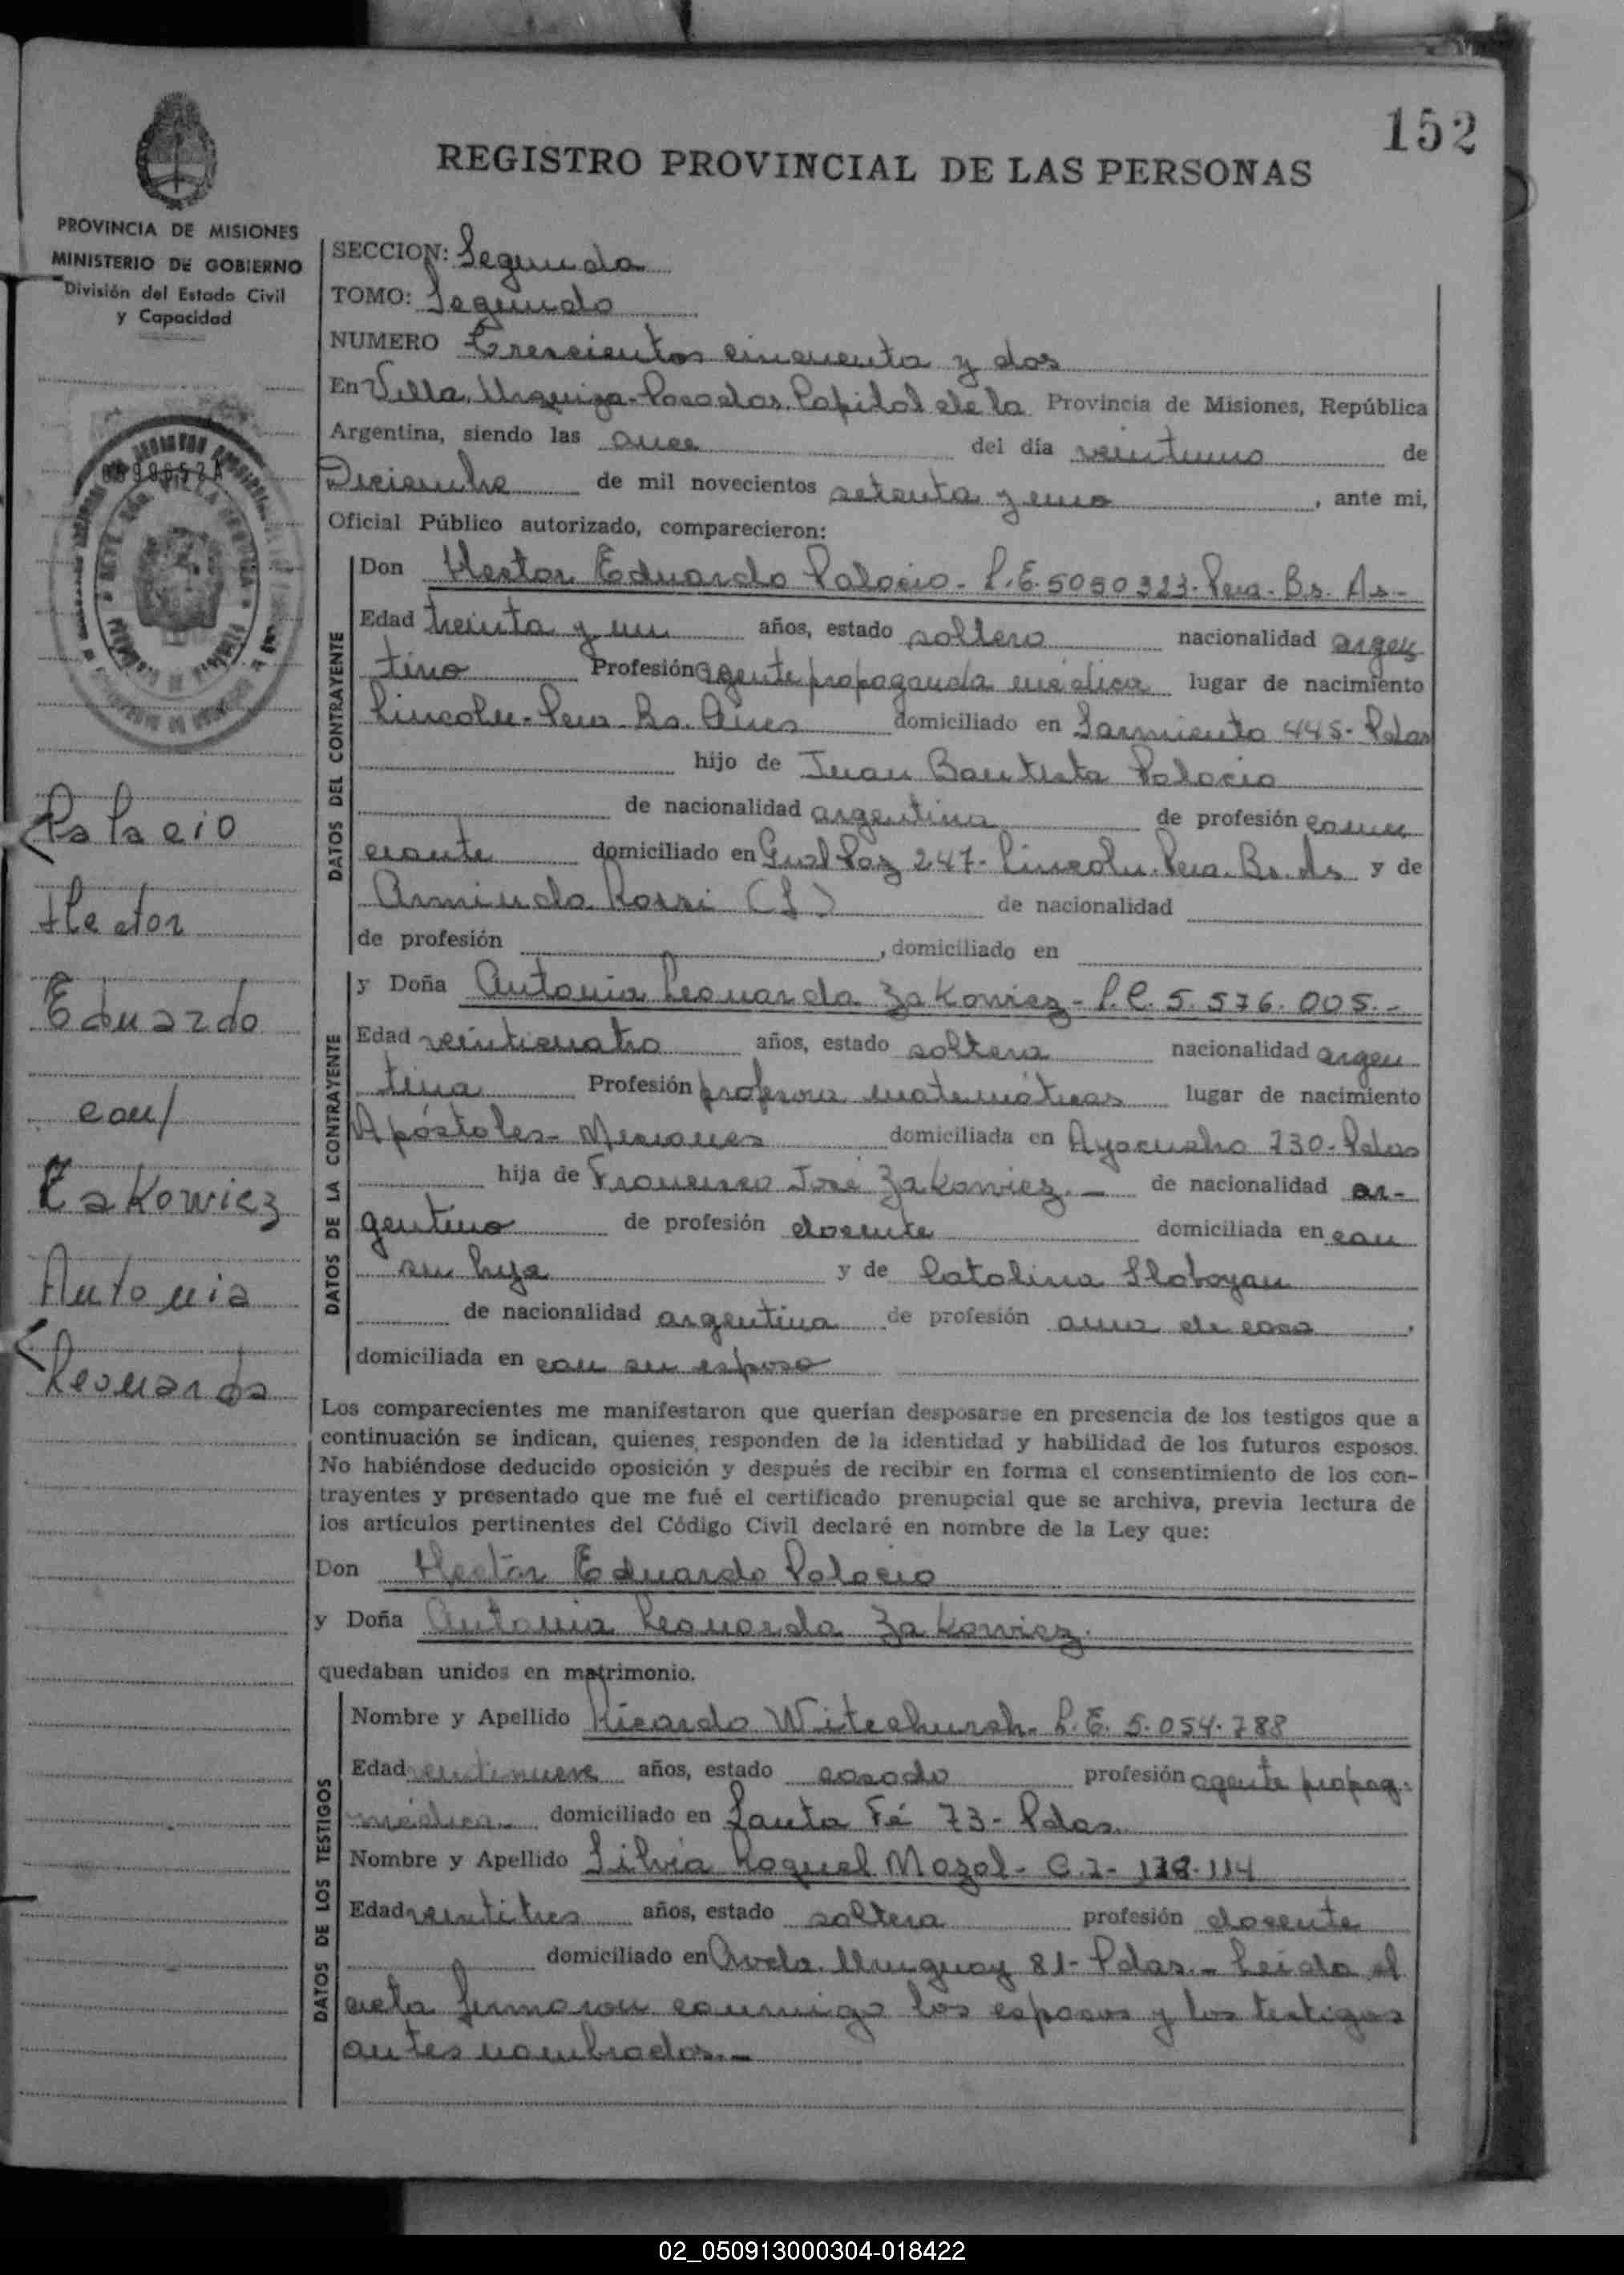 152
REGISTRO PROVINCIAL DE LAS PERSONAS
PROVINCIA DE MISIONES
MINISTERIO DE GOBIERNO
División del Estado Civil
y Capacidad
SECCION: Segunda
TOMO: Segundo
NUMERO Trescientos cincuenta y dos
En Villa Urquiza-Posadas Capital de la Provincia de Misiones, República
Argentina, siendo las once del día veintiuno de
Diciembre de mil novecientos setenta y uno, ante mi,
Oficial Público autorizado, comparecieron:
DATOS DEL CONTRAYENTE
Don Hector Eduardo Palacio - L.E. 5050323- Pcia. Bs. As-
Edad treinta y un años, estado soltero nacionalidad argen
tino Profesión agente propaganda médica lugar de nacimiento
Lincoln-Pcia Bs. Aires domiciliado en Sarmiento 445- Pdas
hijo de Juan Bautista Palacio
de nacionalidad argentina de profesión comer
ciante domiciliado en Gral Paz 247- Lincoln. Pcia. Bs. As y de
Arminda Rossi (f) de nacionalidad
de profesión , domiciliado en
DATOS DE LA CONTRAYENTE
y Doña Antonia Leonarda Zakowicz - L.C. 5.576.005.-
Edad veinticuatro años, estado soltera nacionalidad argen
tina Profesión profesora matemáticas lugar de nacimiento
Apóstoles- Misiones domiciliada en Ayacucho 730- Pdas
hija de Francisco José Zakowicz.- de nacionalidad ar-
gentino de profesión docente domiciliada en con
su hija y de Catalina Slobayan
de nacionalidad argentina de profesión ama de casa ,
domiciliada en con su esposo
Palacio
Hector
Eduardo
con/
Zakowicz
Antonia
Leonarda
Los comparecientes me manifestaron que querían desposarse en presencia de los testigos que a
continuación se indican, quienes responden de la identidad y habilidad de los futuros esposos.
No habiéndose deducido oposición y después de recibir en forma el consentimiento de los con-
trayentes y presentado que me fué el certificado prenupcial que se archiva, previa lectura de
los artículos pertinentes del Código Civil declaré en nombre de la Ley que:
Don Hectór Eduardo Palacio
y Doña Antonia Leonarda Zakowicz.
quedaban unidos en matrimonio.
DATOS DE LOS TESTIGOS
Nombre y Apellido Ricardo Witechursh- L.E. 5.054.788
Edad veintinueve años, estado casado profesión agente propag.
médica domiciliado en Santa Fé 73- Pdas.
Nombre y Apellido Silvia Raquel Mazal- C.I- 128.114
Edad veintitres años, estado soltera profesión docente
domiciliado en Avda. Uruguay 81- Pdas.- Leida el
acta firmaron conmigo los esposos y los testigos
antes nombrados.-
02_050913000304-018422